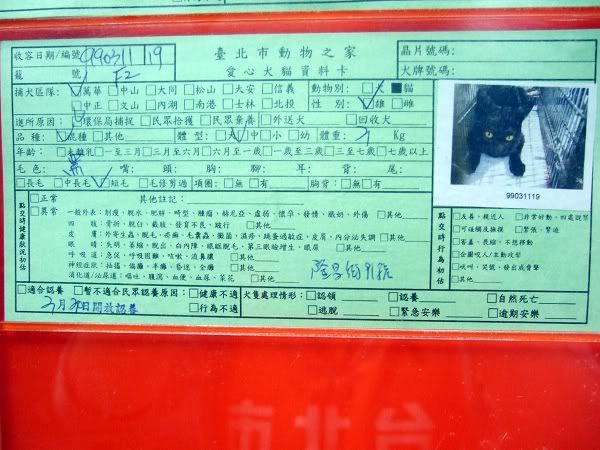 收容日期/編號 990311 19
臺北市動物之家
晶片號碼:
籠 號 F2
愛心犬貓資料卡
犬牌號碼:
捕犬區隊: 萬華 中山 大同 松山 大安 信義
動物別: 犬 貓
中正 文山 內湖 南港 士林 北投
性 別: 雄 雌
進所原因: 環保局捕捉 民眾拾獲 民眾棄養 外送犬 回收犬
品種: 混種 其他 體型: 大 中 小 幼 體重: Kg
年齡: 未離乳 一至三月 三至六月 六月至一歲 一歲至三歲 三至七歲 七歲以上
毛色: 黑 嘴: 頭: 胸: 腳: 耳: 背: 尾:
長毛 中長毛 短毛 毛修剪過 項圈: 無 有 胸背: 無 有
99031119
點交時健康狀況初估
正常 其他註記:
異常 一般外表: 削瘦、脫水、肥胖、畸型、腫瘤、絲光亞、虛弱、懷孕、發情、眼奶、外傷 其他
四 肢: 骨折、脫臼、截肢、發育不良、跛行 其他
皮 膚: 外寄生蟲、脫毛、疥癬、毛囊蟲、黴菌、濕疹、跳蚤過敏症、皮屑、內分泌失調 其他
眼 睛: 失明、萎縮、脫出、白內障、眼瞼脫毛、第三眼瞼增生、眼屎 其他
呼 吸 道: 急促、呼吸困難、咳嗽、流鼻膿 其他
神經症狀: 抽搐、偏癱、半癱、昏迷、全癱 其他
消化道/泌尿道: 嘔吐、腹瀉、血便、血尿、菜花 其他
隆昌街
點交時行為初估
友善、親近人 非常好動、四處跳竄
可碰觸及撫摸 緊張、緊迫
害羞、畏縮、不想移動
企圖咬人/主動攻擊
吠叫、哭號、發出威脅聲
其他
適合認養 暫不適合民眾認養原因: 健康不適
行為不適
3月20日開放認養
犬隻處理情形: 認領 認養 自然死亡
逃脫 緊急安樂 逾期安樂
台北市